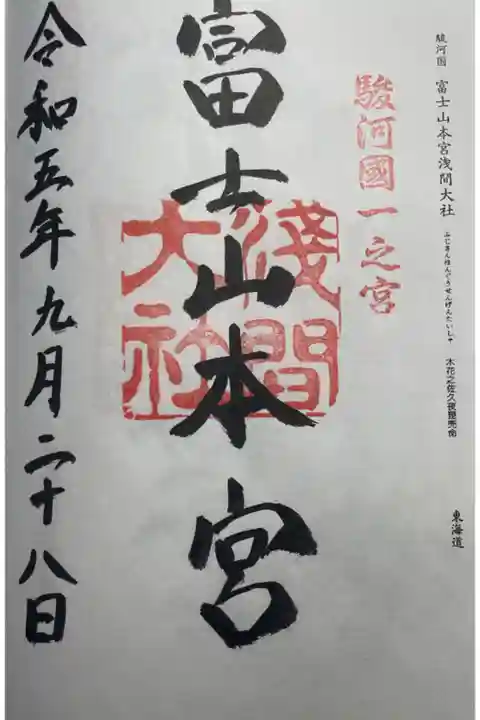 駿河国 富士山本宮浅間大社 ふじさんほんぐうせんげんたいしゃ 木花之佐久夜毘売命 東海道
駿河國一之宮
富士山本宮
淺間大社
令和五年九月二十八日